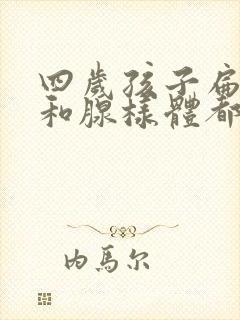 四歲孩子扁
和腺樣體都
内馬尔